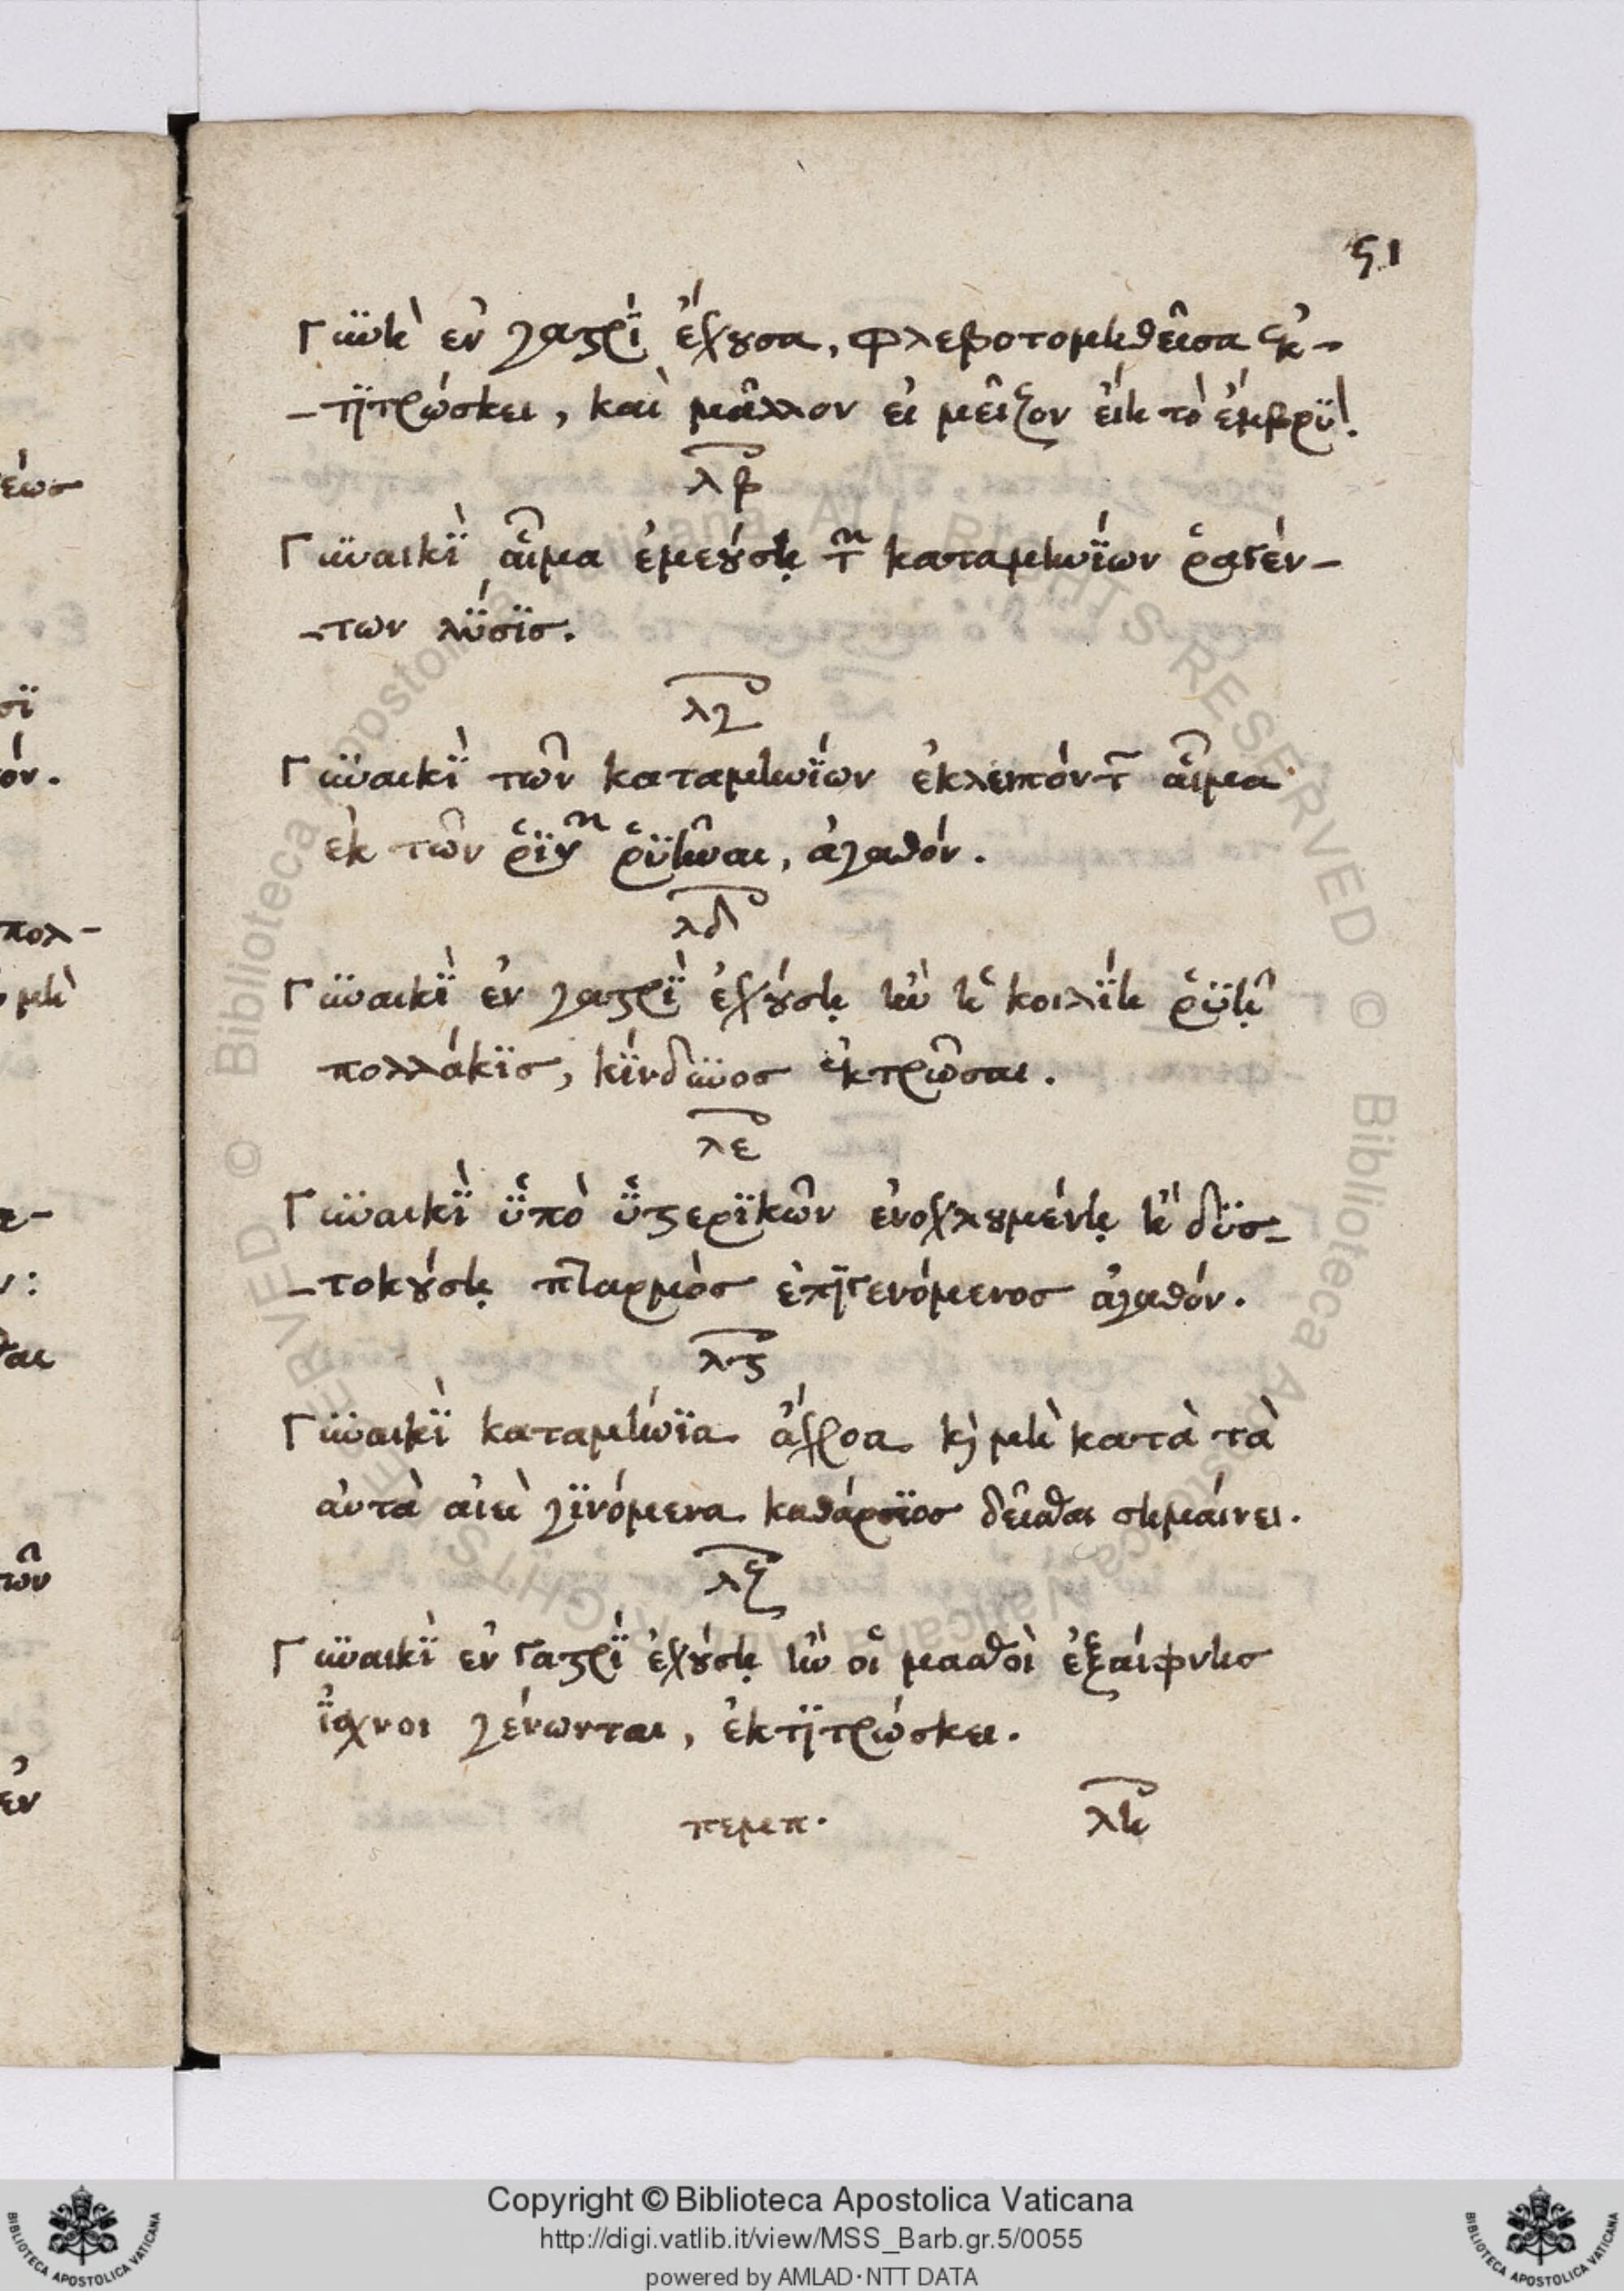 51
Γυνὴ ἐν γαστρὶ ἔχουσα, φλεβοτομηθεῖσα ἐκ-
-τιτρώσκει, καὶ μᾶλλον εἰ μεῖζον εἴη τὸ ἔμβρυ.
λβ
Γυναικὶ αἷμα ἐμεούσῃ τῶν καταμηνίων ῥαγέν-
-των λύσις.
λγ
Γυναικὶ τῶν καταμηνίων ἐκλειπόντ αἷμα
ἐκ τῶν ῥινῶν ῥυῆναι, ἀγαθόν.
λδ
Γυναικὶ ἐν γαστρὶ ἐχούσῃ ἢν ἡ κοιλίη ῥυῇ
πολλάκις, κίνδυνος ἐκτρῶσαι.
λε
Γυναικὶ ὑπὸ ὑστερικῶν ἐνοχλουμένῃ ἢ δυσ-
-τοκούσῃ πταρμὸς ἐπιγενόμενος ἀγαθόν.
λς
Γυναικὶ καταμήνια ἄχροα κὶ μὴ κατὰ τὰ
αὐτὰ αἰεὶ γινόμενα καθάρσιος δεῖσθαι σημαίνει.
λζ
Γυναικὶ ἐν γαστρὶ ἐχούσῃ ἢν οἱ μασθοὶ ἐξαίφνης
ἰσχνοὶ γένωνται, ἐκτιτρώσκει.
πεμπ. λη
έως
σϊ
όν.
πολ-
μὴ
ν:
θαι
τῶν
ἐν
Copyright © Biblioteca Apostolica Vaticana
http://digi.vatlib.it/view/MSS_Barb.gr.5/0055
powered by AMLAD·NTT DATA
BIBLIOTECA APOSTOLICA VATICANA
BIBLIOTECA APOSTOLICA VATICANA